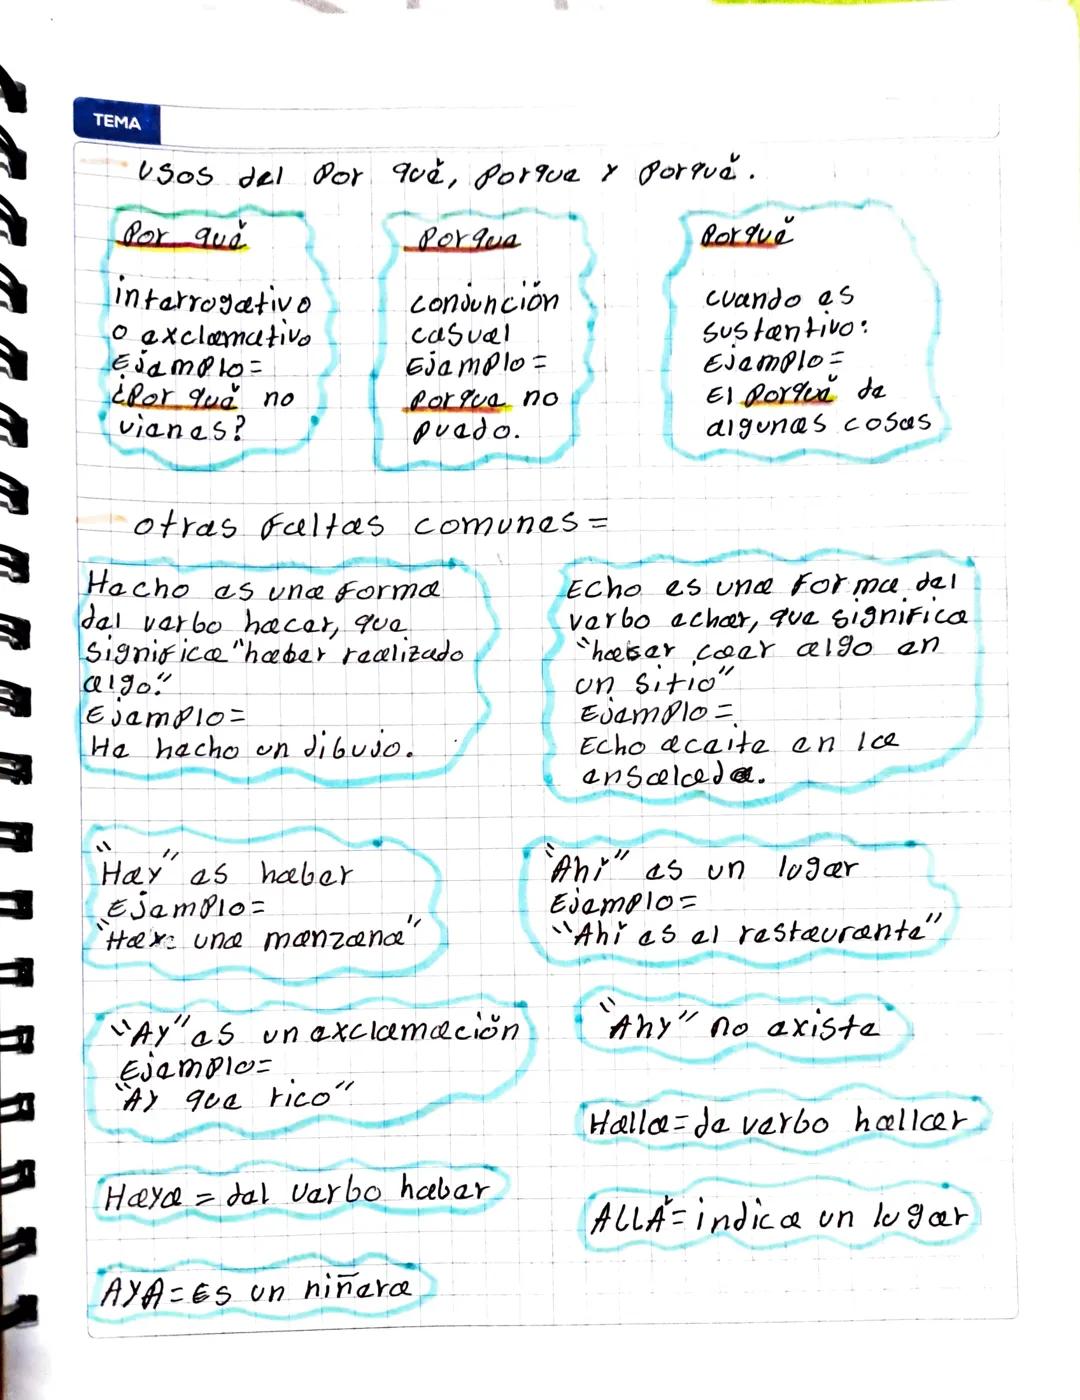 TEMA
Usos del Por qué, Porque y Porqué.
Por qué
interrogativo
o exclamativo
Ejemplo=
¿Por qué no
vienes?
Porque
conjunción
casual
Ejemplo=
Porque no
puedo.
Porqué
cuando es
sustantivo:
Ejemplo=
El Porqué de
algunas cosas
otras Faltas comunes=
Hecho es una forma
del verbo hacer, que
significa "haber realizado
algo."
Ejemplo=
He hecho un dibujo.
Echo es una forma del
verbo echar, que significa
"haser caer algo en
un sitio"
Ejemplo=
Echo aceite en la
ensalada.
"Hay" es haber
Ejemplo=
"Hay una manzana"
"Ahí" es un lugar
Ejemplo=
"Ahí es el restaurante"
"Ay" es un exclamación
Ejemplo=
"Ay que rico"
"Ahy" no existe
Halla=de verbo hallar
Haya = del verbo haber
ALLÁ=indica un lugar
AYA=Es un niñera